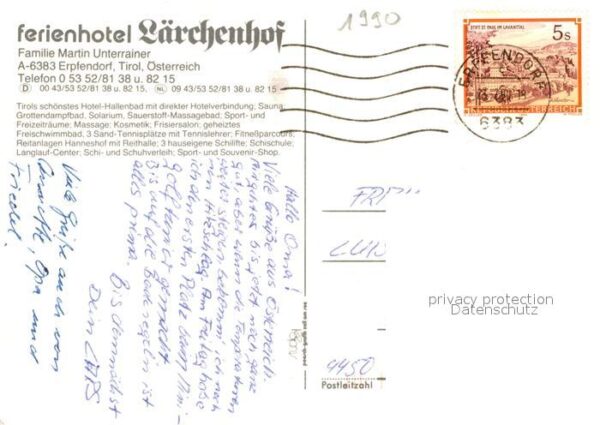 1990
ferienhotel Lärchenhof
Familie Martin Unterrainer
A-6383 Erpfendorf, Tirol, Österreich
Telefon 0 53 52/81 38 u. 82 15
D 00 43/53 52/81 38 u. 82 15, NL 09 43/53 52/81 38 u. 82 15
Tirols schönstes Hotel-Hallenbad mit direkter Hotelverbindung; Sauna;
Grottendampfbad, Solarium, Sauerstoff-Massagebad; Sport- und
Freizeiträume; Massage; Kosmetik; Frisiersalon; geheiztes
Freischwimmbad, 3 Sand-Tennisplätze mit Tennislehrer; Fitneßparcours,
Reitanlagen Hanneshof mit Reithalle; 3 hauseigene Schilifte; Schischule,
Langlauf-Center; Schi- und Schuhverleih; Sport- und Souvenir-Shop.
STIFT ST. PAUL IM LAVANTTAL
5s
REPUBLIK ÖSTERREICH
ERPFENDORF
6383
Hallo Oma!
Viele Grüße aus Österreich.
bis jetzt noch ganz
gut, aber wenn die Temperaturen
weiter steigen bekomme ich noch
nen Hitzschlag. Am Freitag habe
ich den ersten Platz beim Mini-
golfturnier gemacht
Bis auf die Bade regeln ist
alles prima.
Bis demnächst
Dein
Viele Grüße auch von
Annette, Opa und
Friedel.
4450
Postleitzahl
privacy protection
Datenschutz